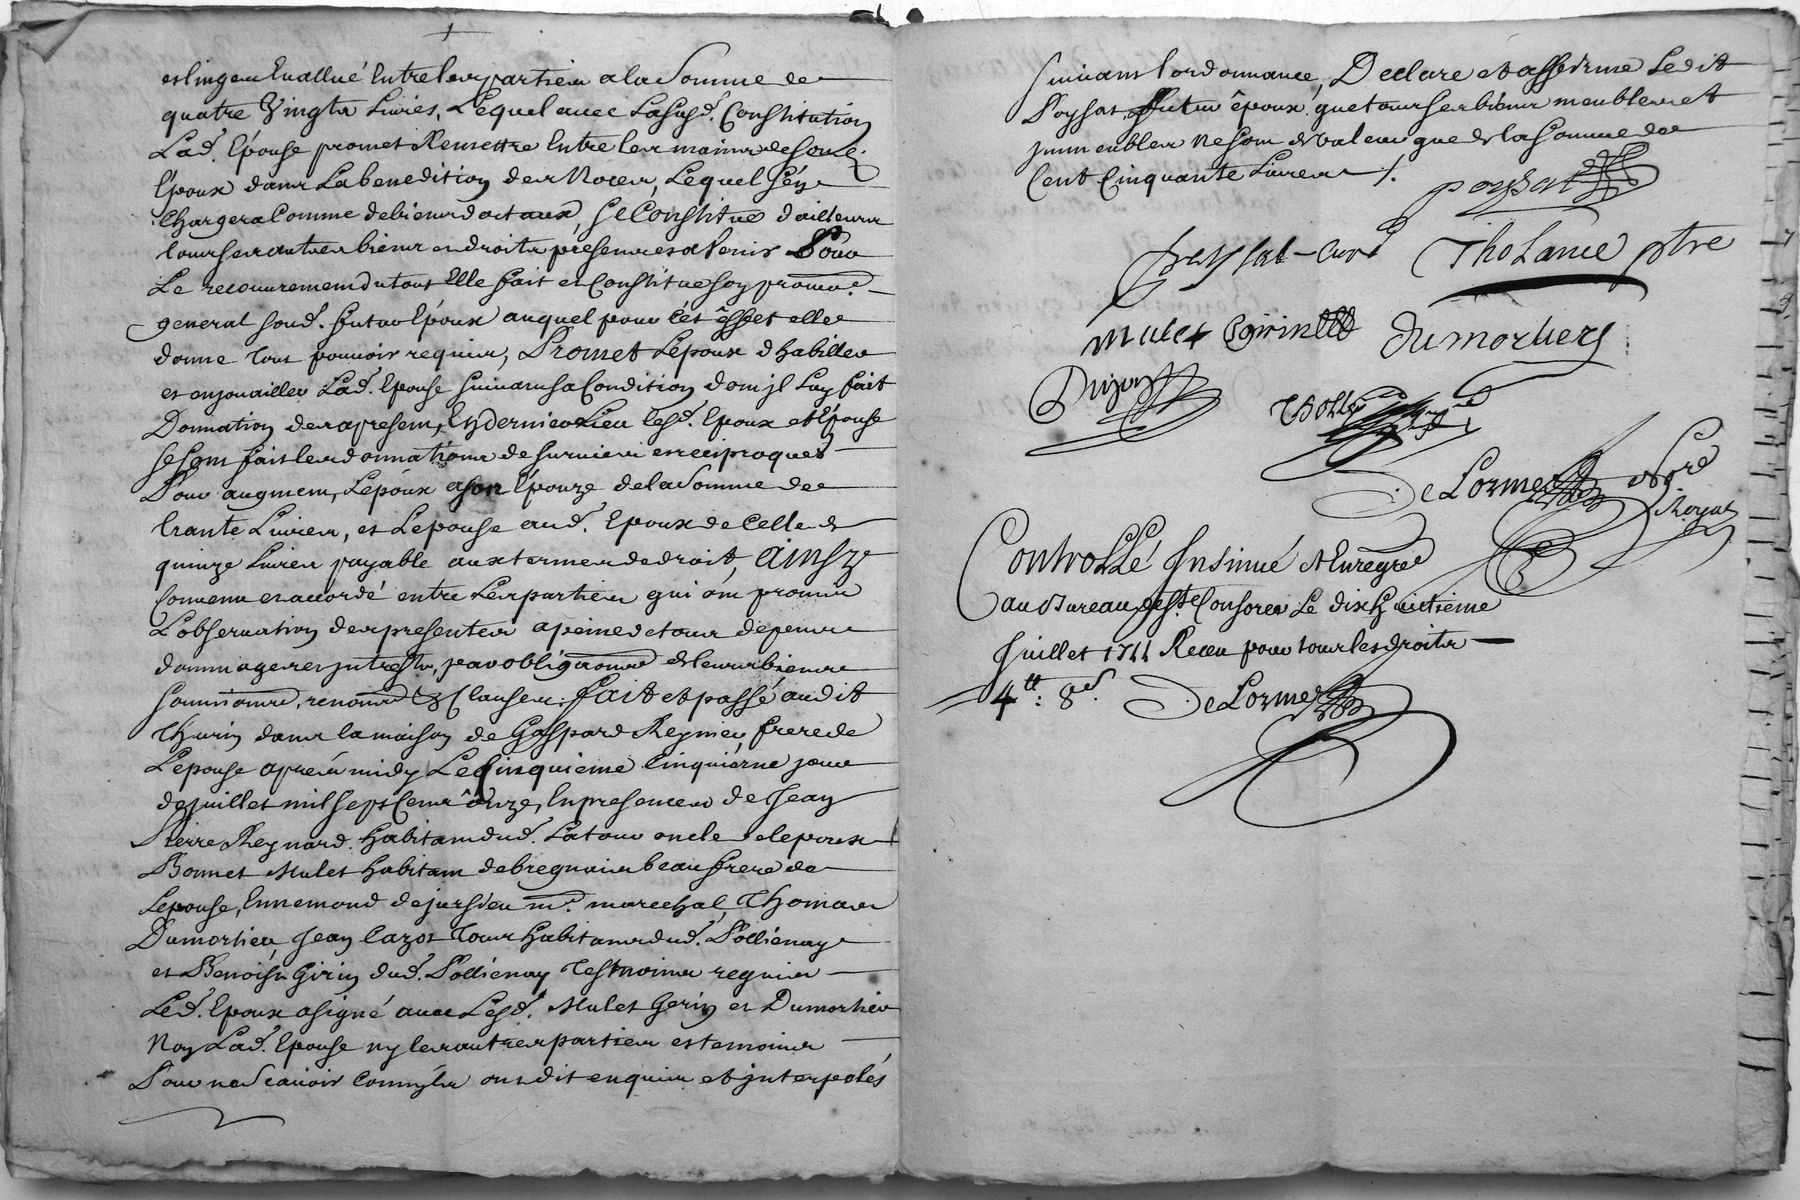 et linge evallué Entre les parties a la Somme de
quatre Vingts Livres, Lequel avec Lasusd. Constitution
Lad. Epouse promet Remettre Entre les mains de son
Epoux dans La benediction des Noces, Lequel s'en
Chargera Comme de biens dotaux, se Constitue d'ailleurs
tous ses autres biens et droits présents et a venir Pour
Le recouvrement du tout Elle fait et Constitue son procur.
general soud. futur Epoux auquel pour cet êffet elle
donne tout pouvoir requis, Promet L'epoux d'habiller
et enjouailler Lad. Epouse suivant sa Condition dont jl Luy fait
Donnation des a present, En dernier Lieu Lesd. Epoux et Epouse
se sont fait les donnations de survie et reciproques
Pour augment, L'epoux a son Epouze de la Somme de
trante Livres, et L'epouse aud. Epoux de Celle de
quinze Livres payable aux termes de droit, Ainsy
Convenu et accordé entre Les parties qui ont promis
L'observation des presentes a peine de tous depens
dommages et jntrests, par obligaons de leurs biens
soumissions, renon & Clauses. fait et passé audit
Thurin dans la maison de Gaspard Reymer frere de
L'epouse apres midy Le Cinquieme Cinquième jour
de juillet mil sept Cent ônze, En presence de Jean
Pierre Reynard habitant dud. Latour oncle de lepoux
Bonnet Mulet habitant de bregnais beau frere de
Lepouse, Ennemond dejussieu m. marechal, Thomas
Dumortier, Jean Cazot Tous habitans dud. Pollienay
et Benoist Girin dud. Pollienay Tesmoins requis
Led. Epoux a signé avec Lesd. Mulet Gerin et Dumortier
Non Lad. Epouse ny les autres parties et temoins
Pour ne Scavoir Comm'ils ont dit enquis et jnterpelés
suivant l'ordonnance, Declare et affirme Ledit
Poyzat futur époux que tous ses biens meubles et
jmmeubles ne sont de valeur que de la Somme de
Cent Cinquante Livres /.
poyzat
Curé Tholance ptre
Mulet Girin dumortiers
De Lorme Nore
Royal
Controllé Insinué & Enregré
au Bureau de St Consorce Le dix huictieme
Juillet 1711 Receu pour tous les droits
4tt: 8s. De Lorme